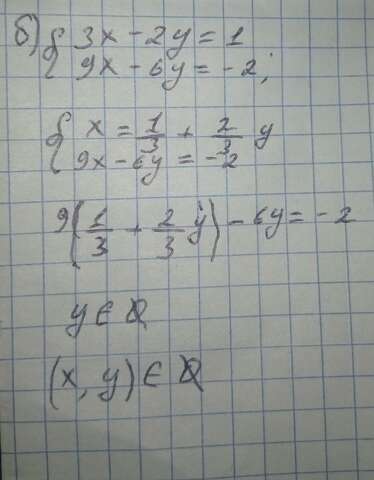 б) { 3x - 2y = 1
9x - 6y = -2;
{ x = 1/3 + 2/3 y
9x - 6y = -2
9(1/3 + 2/3 y) - 6y = -2
y ∈ Ø
(x, y) ∈ Ø